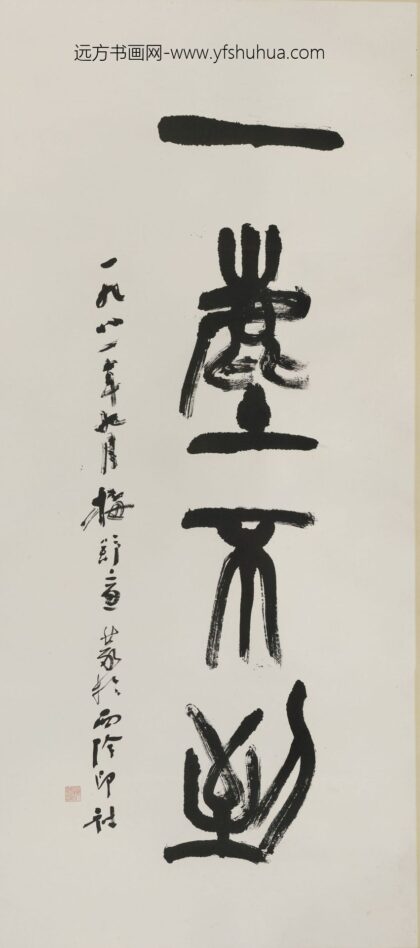 远方书画网-www.yfshuhua.com
一塵不到
一九八二年九月梅舒適篆於西泠印社